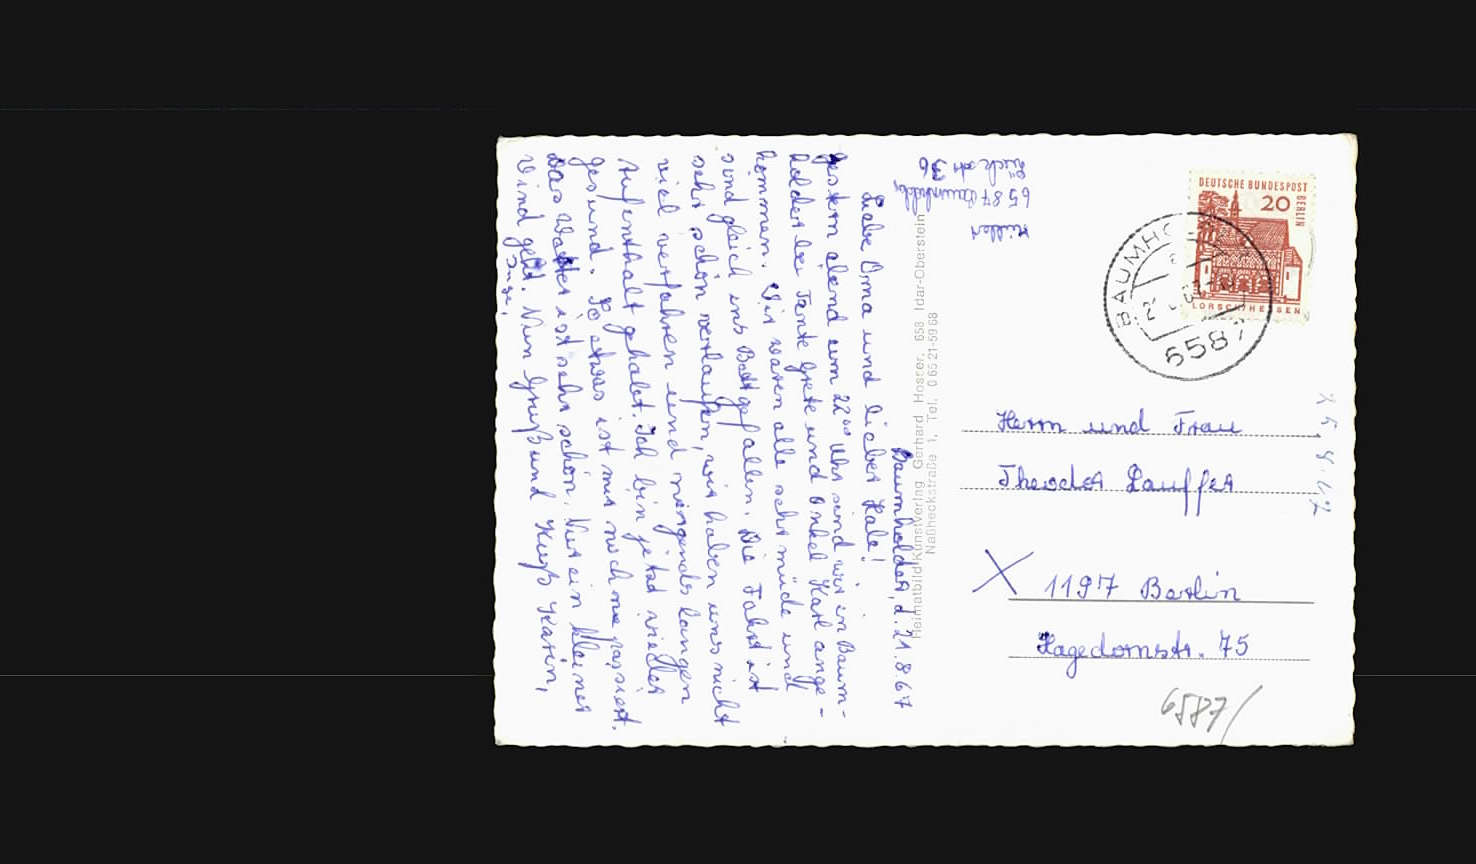 Baumholder, d. 21.8.67
Liebe Oma und lieber Kale!
Gestern abend um 22⁰⁰ Uhr sind wir in Baum-
holder bei Tante Grete und Onkel Karl ange-
kommen. Wir waren alle sehr müde und
sind gleich ins Bett gefallen. Die Fahrt ist
sehr schön verlaufen, wir haben uns nicht
viel verfahren und nirgends langen
Aufenthalt gehabt. Ich bin jetzt wieder
gesund. So etwas ist mir noch nie passiert.
Das Wetter ist sehr schön. Nur ein kleiner
Wind geht. Nun Gruß und Kuß Karin,
Inge.
6587 Baumholder,
36
Heimatbild Kunstverlag Gerhard Hoster, 658 Idar-Oberstein
Naßheckstraße 1, Tel. 0 65 21-59 68
DEUTSCHE BUNDESPOST
BERLIN
20
LORSCH/HESSEN
BAUMHO
6587
Herrn und Frau
Theodor Lauffer
1197 Berlin
Hagedornstr. 75
6587/